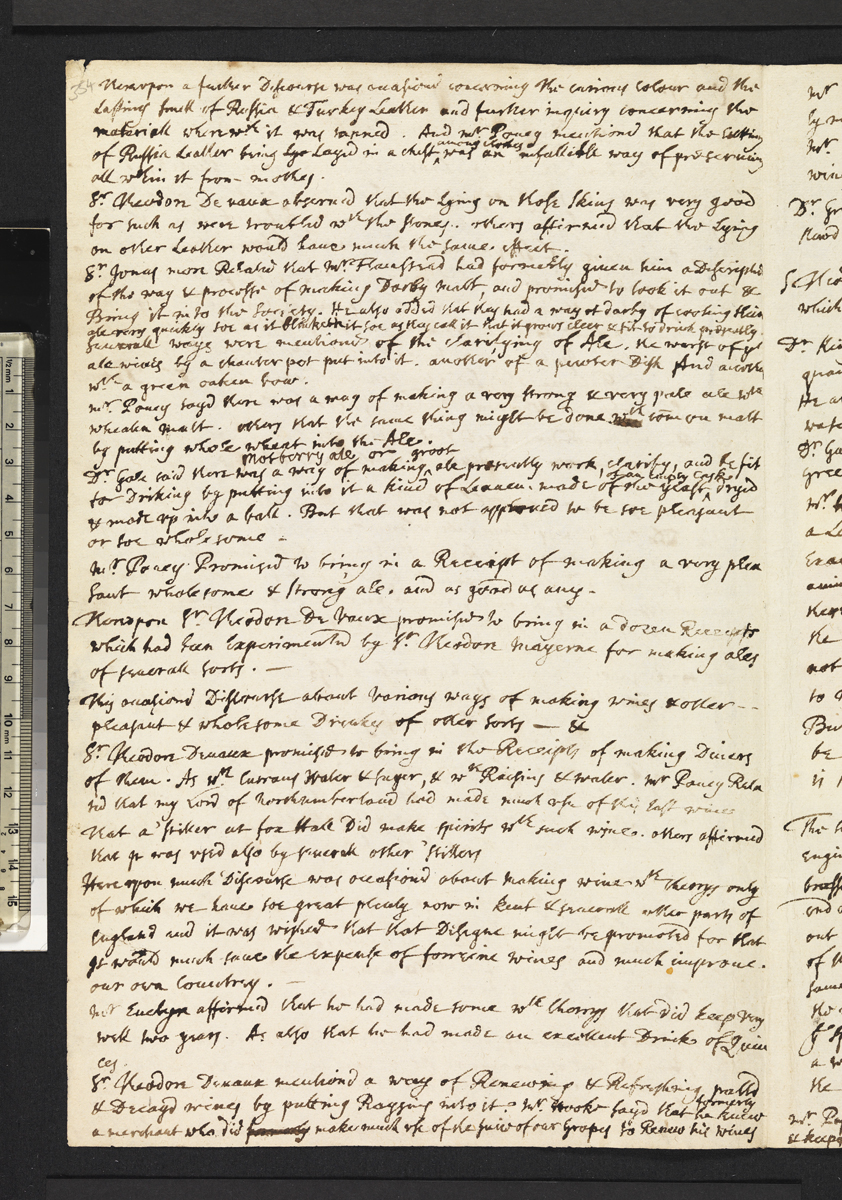 354
Hereupon a further Discourse was occasiond concerning the curious colour and the
Lasting smell of Russia & Turkey Leather and further inquiry concerning the
materiall wherewth it was tanned. And mr. Poucy mentiond that the
of Russia Leather being Layd in a chest among clothes was an infallible way of preserving
all wthin it from mothes.
Sr. Theodor De vaux observed that the Lying on those skins was very good
for such as were troubled wth the stone. others affirmed that the Lying
on other Leather would have much the same effect.
Sr. Jonas more Related that Mr. Flamstead had formerly given him a Descriptio
of the way & processe of making Darby malt, and promised to look it out &
Bring it into the Society. He also added that they had a way at darby of cooling their
ale very quickly soe as it it soe as they call it that it grows cleer & fit to drink presently.
Severall ways were mentiond of the clarifying of Ale. the worst of
ale wives by a chamber pot put into it. another of a pewter Dish And another
wth a green oaken bow.
mr. Poucy sayd there was a way of making a very strong & very pale ale wth
wheaten malt. others that the same thing might be done wth comon malt
by putting whole wheat into the Ale.
Dr. Gale said there was a way of making Motherry ale or groot ale presently work, clarify, and be fit
for Drinking by putting into it a kind of Leaven made of the yeast dryed
& made up into a ball. But that was not approved to be soe pleasant
or soe wholesome -
mr. Poucy Promised to bring in a Receipt of making a very plea
sant wholesome & strong ale. and as good as any -
Hereupon Sr. Theodor De Vaux promised to bring in a dozen Receipts
which had been Experimented by Sr. Theodor Mayerne for making ales
of severall sorts. -
This occasiond Discourse about various ways of making wines & other - -
pleasant & wholesome Drinks of other sorts - &
Sr. Theodor Devaux promised to bring in the Receipts of making Divers
of them. As wth Currans water & suger, & wth Raisins & water. mr Poucy Rela
ted that my Lord of Northumberland had made much use of this last wine
that a stiller at fox Hall Did make spirits wth such wine. others affirmed
that it was used also by severall other stillers
Hereupon much Discourse was occasiond about making wine wth cherrys only
of which we have soe great plenty now in kent & severall other parts of
England and it was wished that that Designe might be promoted for that
it would much save the expense of forreine wines and much improve.
our own Country. -
mr Evelyn affirmed that he had made some wth cherrys that did keep very
well two years. As also that he had made an excellent Drink of Quin
ces.
Sr. Theodor Devaux mentiond a way of Renewing & Refreshing palld
& Decayd wines by putting Raysins into it. Mr. Hooke sayd that he knew formerly
a merchant who did make much use of the juice of our Grapes to Renew his wines